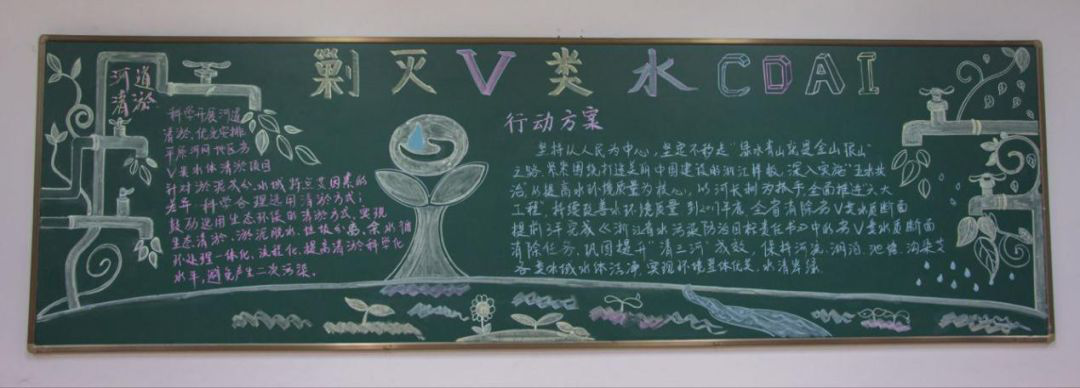 剿灭V类水CDAI
河道
清淤
科学开展河道
清淤，优先安排
平原河网地区劣
V类水体清淤项目
针对淤泥成分、水域特点等因素的
差异，科学合理选用清淤方式；
鼓励选用生态环保的清淤方式，实现
生态清淤、淤泥脱水、垃圾分离、余水循
环处理一体化、流程化，提高清淤科学化
水平，避免产生二次污染。
行动方案
坚持以人民为中心，坚定不移走"绿水青山就是金山银山"
之路，紧紧围绕打造美丽中国建设的浙江样板，深入实施"五水共
治"，以提高水环境质量为核心，以河长制为抓手，全面推进六大
工程，持续改善水环境质量，到2017年底，全省消除劣V类水质断面
提前3年完成《浙江省水污染防治目标责任书》中的劣V类水质断面
消除任务，巩固提升"清三河"成效，使排河流、湖泊、池塘、沟渠等
各类水域水体洁净，实现环境整体优美、水清岸绿